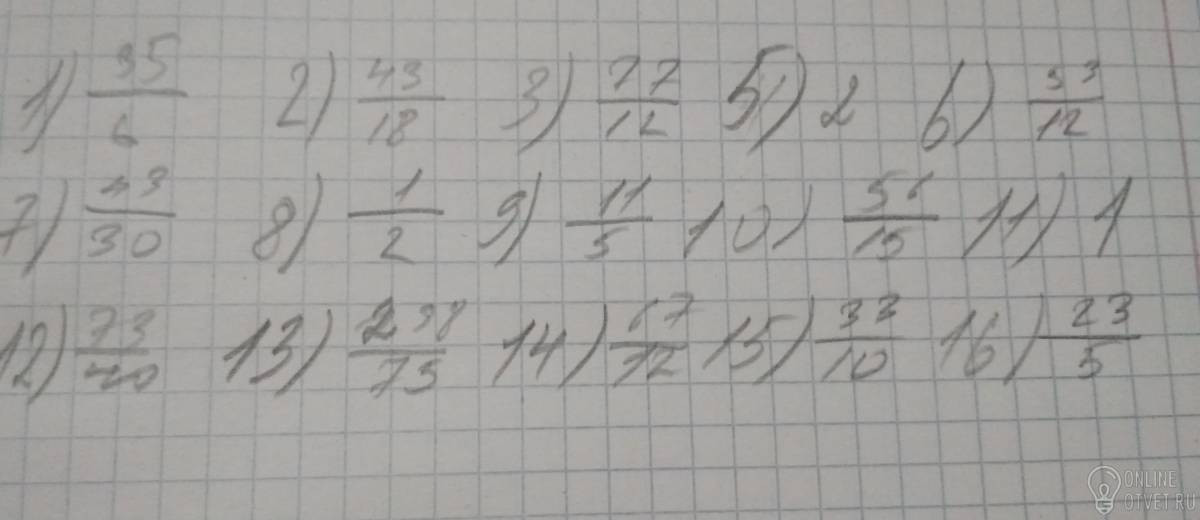 1) 35/6 2) 43/18 3) 77/12 5) 2 6) 33/12
7) 43/30 8) 1/2 9) 11/5 10) 56/15 11) 1
12) 73/40 13) 238/75 14) 67/12 15) 33/10 16) 23/5
ONLINE
OTVET.RU